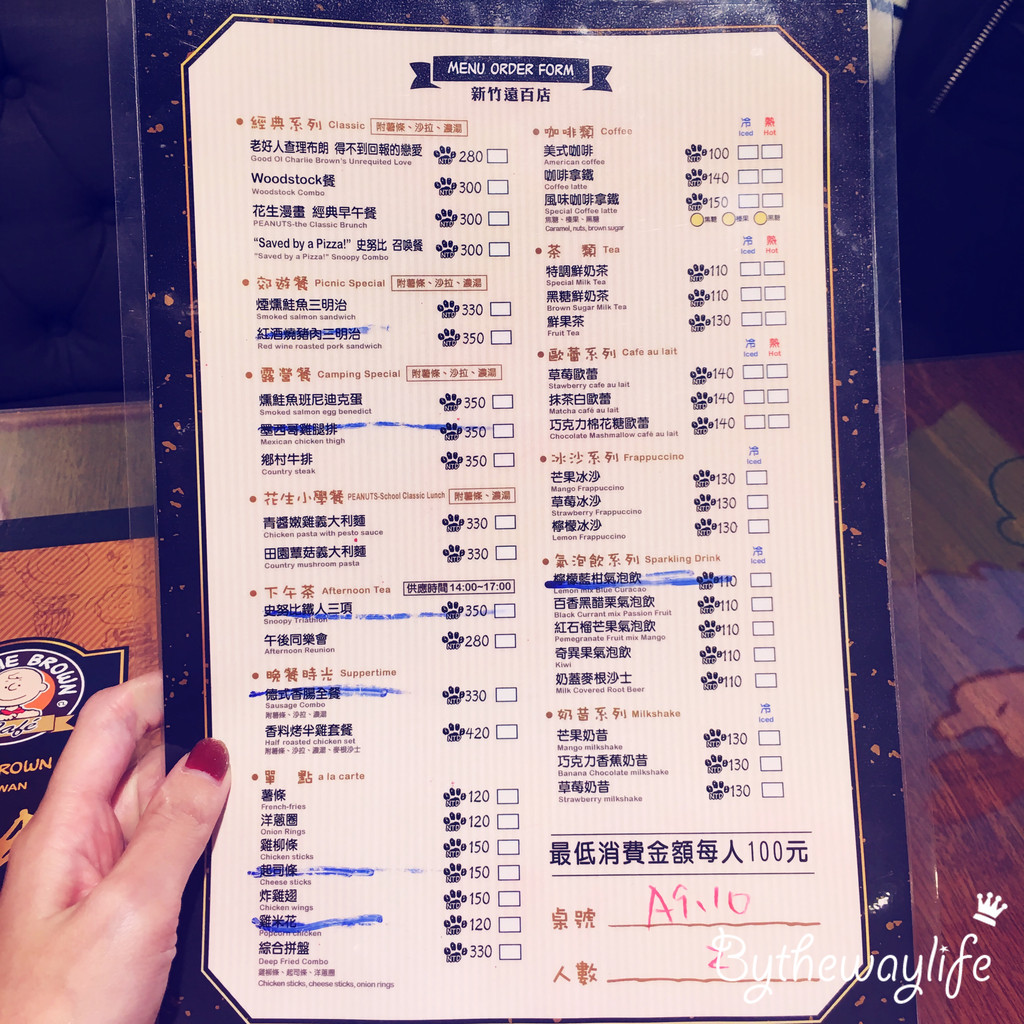 MENU ORDER FORM
新竹遠百店
經典系列 Classic 附薯條、沙拉、濃湯
老好人查理布朗 得不到回報的戀愛 NTD 280
Good Ol Charlie Brown's Unrequited Love
Woodstock餐 NTD 300
Woodstock Combo
花生漫畫 經典早午餐 NTD 300
PEANUTS-the Classic Brunch
"Saved by a Pizza!" 史努比 召喚餐 NTD 300
"Saved by a Pizza!" Snoopy Combo
郊遊餐 Picnic Special 附薯條、沙拉、濃湯
煙燻鮭魚三明治 NTD 330
Smoked salmon sandwich
紅酒燒豬肉三明治 NTD 350
Red wine roasted pork sandwich
露營餐 Camping Special 附薯條、沙拉、濃湯
燻鮭魚班尼迪克蛋 NTD 350
Smoked salmon egg benedict
墨西哥雞腿排 NTD 350
Mexican chicken thigh
鄉村牛排 NTD 350
Country steak
花生小學餐 PEANUTS-School Classic Lunch 附薯條、濃湯
青醬嫩雞義大利麵 NTD 330
Chicken pasta with pesto sauce
田園蕈菇義大利麵 NTD 330
Country mushroom pasta
下午茶 Afternoon Tea 供應時間 14:00~17:00
史努比鐵人三項 NTD 350
Snoopy Triathlon
午後同樂會 NTD 280
Afternoon Reunion
晚餐時光 Suppertime
德式香腸全餐 NTD 330
Sausage Combo
附薯條、沙拉、濃湯
香料烤半雞套餐 NTD 420
Half roasted chicken set
附薯條、沙拉、濃湯、麥根沙士
單點 a la carte
薯條 NTD 120
French-fries
洋蔥圈 NTD 120
Onion Rings
雞柳條 NTD 150
Chicken sticks
起司條 NTD 150
Cheese sticks
炸雞翅 NTD 150
Chicken wings
雞米花 NTD 120
Popcorn chicken
綜合拼盤 NTD 330
Deep Fried Combo
雞柳條、起司條、洋蔥圈
Chicken sticks, cheese sticks, onion rings
咖啡類 Coffee 冷 Iced 熱 Hot
美式咖啡 NTD 100
American coffee
咖啡拿鐵 NTD 140
Coffee latte
風味咖啡拿鐵 NTD 150
Special Coffee latte
焦糖、榛果、黑糖 焦糖 榛果 黑糖
Caramel, nuts, brown sugar
茶類 Tea 冷 Iced 熱 Hot
特調鮮奶茶 NTD 110
Special Milk Tea
黑糖鮮奶茶 NTD 110
Brown Sugar Milk Tea
鮮果茶 NTD 130
Fruit Tea
歐蕾系列 Cafe au lait 冷 Iced 熱 Hot
草莓歐蕾 NTD 140
Stawberry cafe au lait
抹茶白歐蕾 NTD 140
Matcha café au lait
巧克力棉花糖歐蕾 NTD 140
Chocolate Mashmallow café au lait
冰沙系列 Frappuccino 冷 Iced
芒果冰沙 NTD 130
Mango Frappuccino
草莓冰沙 NTD 130
Strawberry Frappuccino
檸檬冰沙 NTD 130
Lemon Frappuccino
氣泡飲系列 Sparkling Drink 冷 Iced
檸檬藍柑氣泡飲 NTD 110
Lemon mix Blue Curacao
百香黑醋栗氣泡飲 NTD 110
Black Currant mix Passion Fruit
紅石榴芒果氣泡飲 NTD 110
Pemegranate Fruit mix Mango
奇異果氣泡飲 NTD 110
Kiwi
奶蓋麥根沙士 NTD 110
Milk Covered Root Beer
奶昔系列 Milkshake 冷 Iced
芒果奶昔 NTD 130
Mango milkshake
巧克力香蕉奶昔 NTD 130
Banana Chocolate milkshake
草莓奶昔 NTD 130
Strawberry milkshake
最低消費金額每人100元
桌號 A9.10
人數
Bythewaylife
BROWN
Café
BROWN
WAN